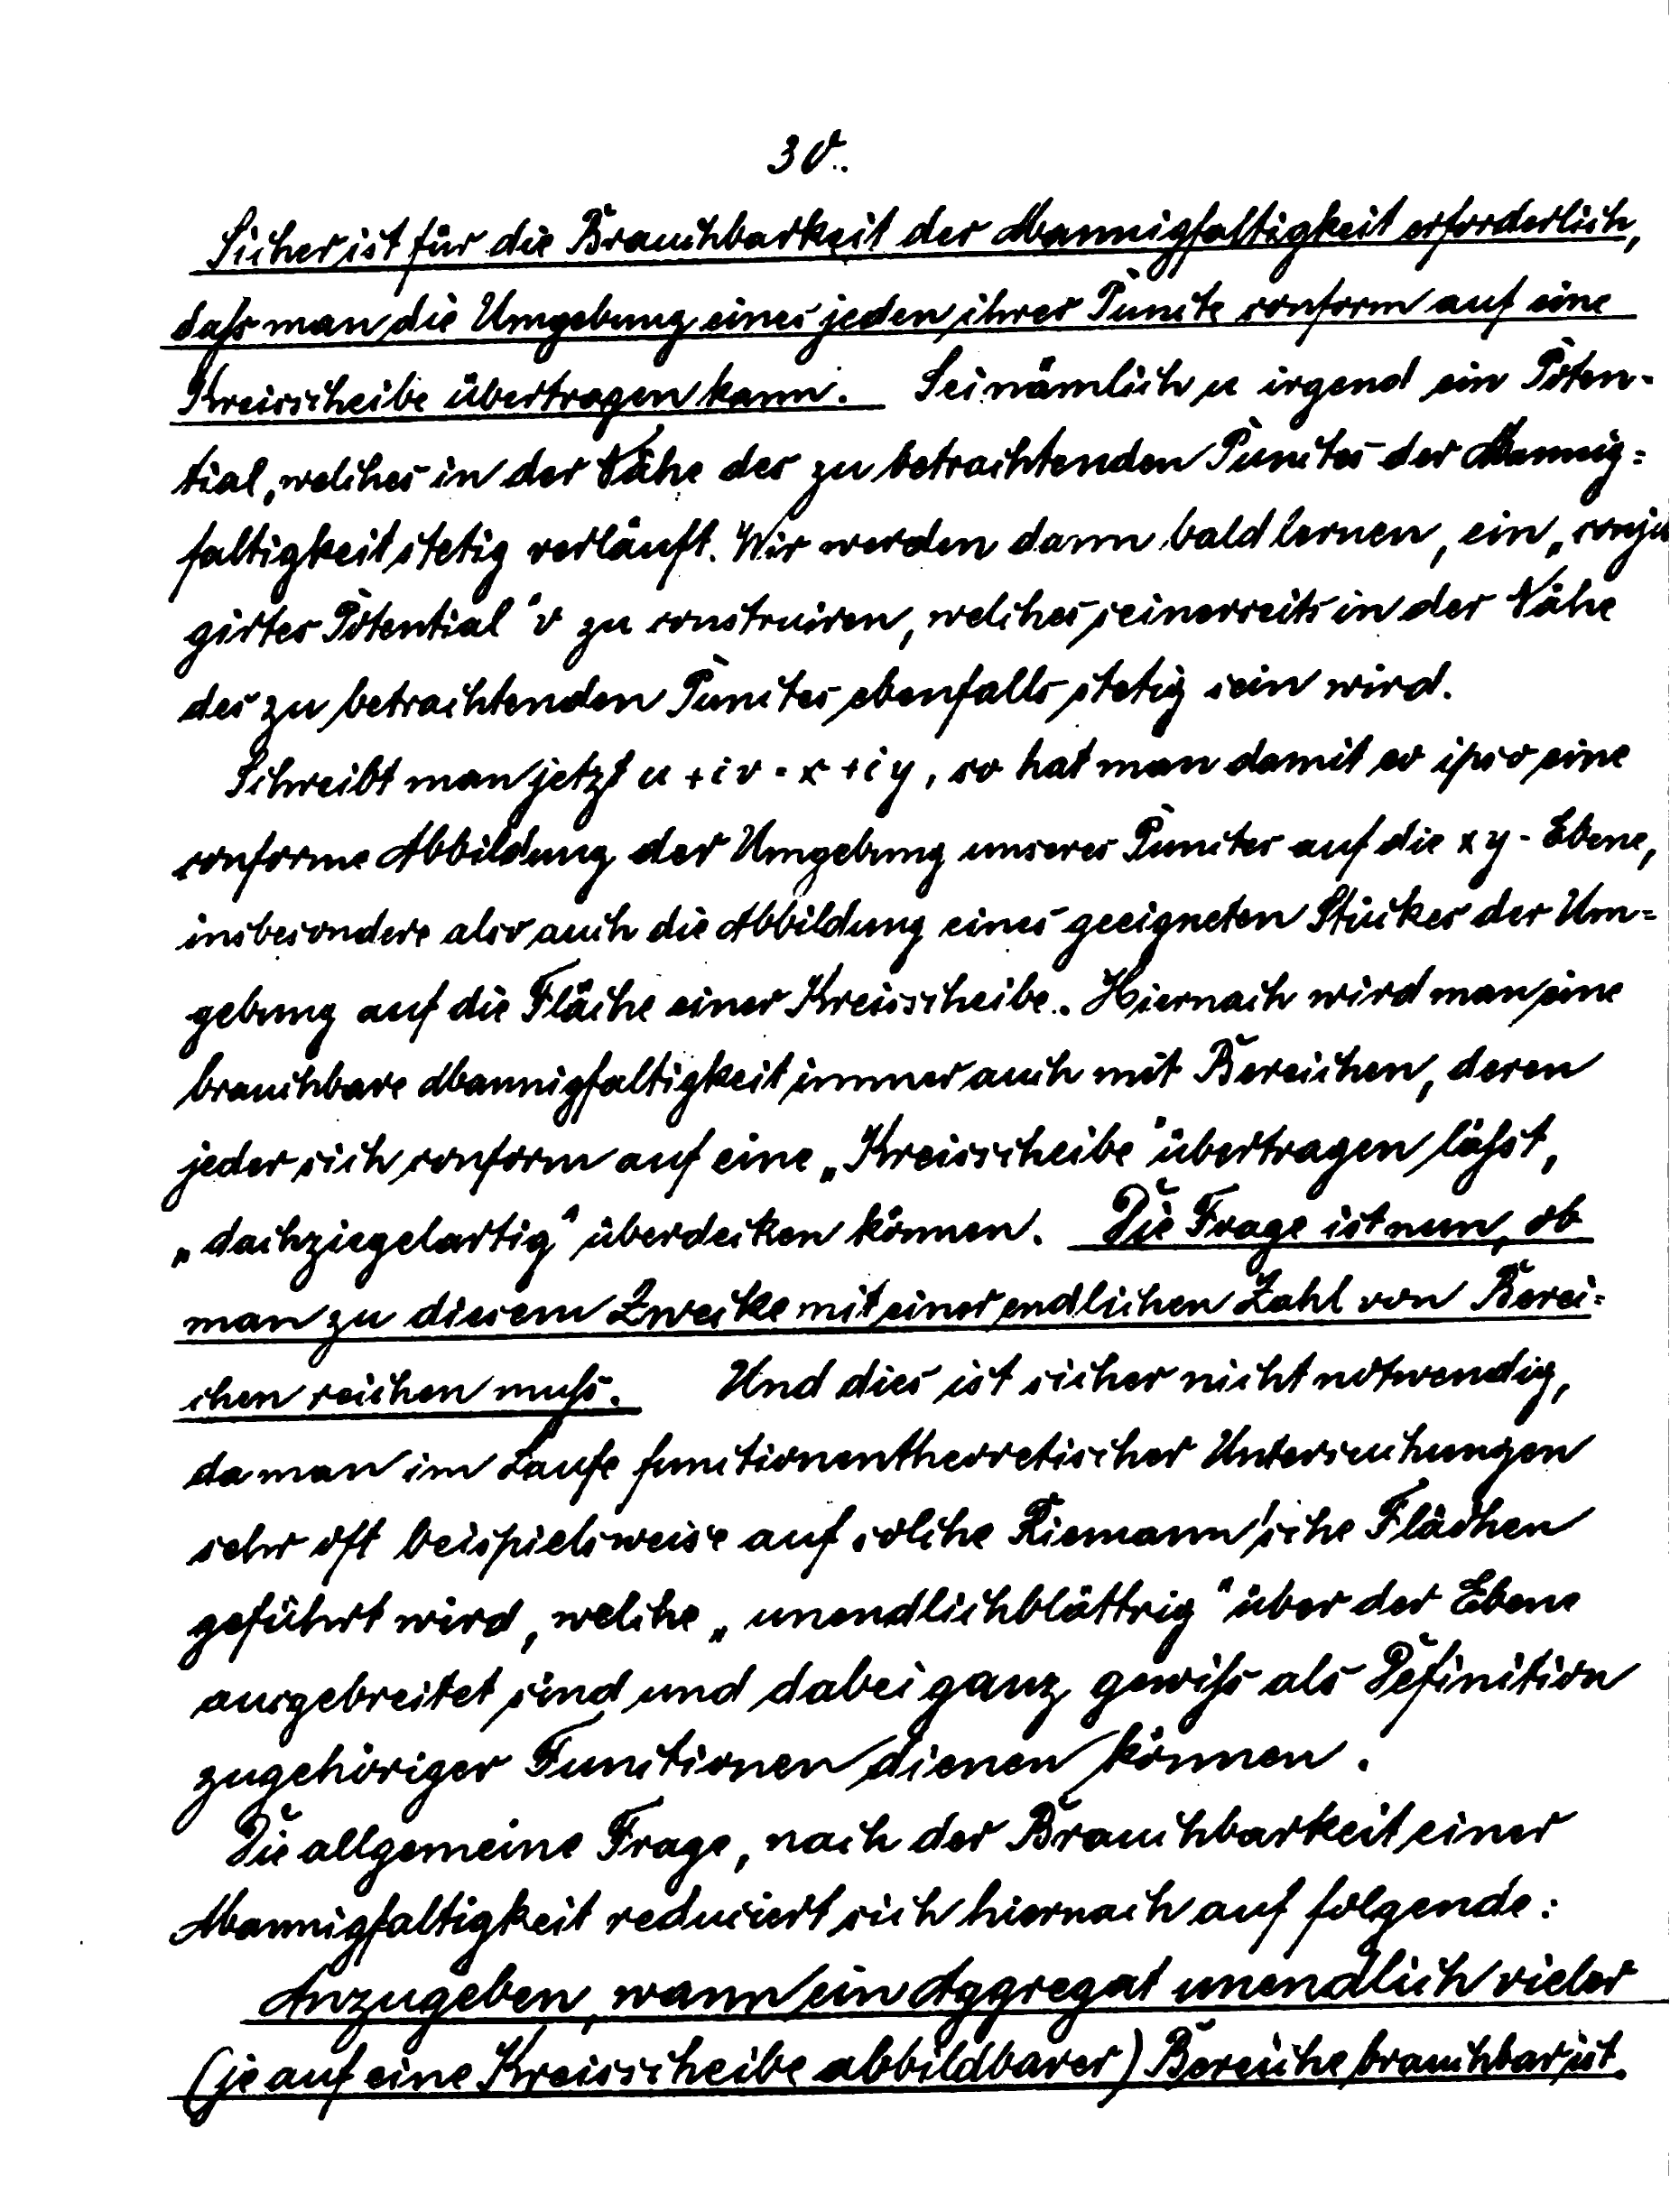 30.
Sicher ist für die Brauchbarkeit der Mannigfaltigkeit erforderlich,
daſs man die Umgebung eines jeden ihrer Puncte conform auf eine
Kreisscheibe übertragen kann. Sei nämlich u irgend ein Poten-
tial, welches in der Nähe des zu betrachtenden Punctes der Mannig=
faltigkeit stetig verläuft. Wir werden dann bald lernen, ein „conju
girtes Potential" v zu construiren, welches seinerseits in der Nähe
des zu betrachtenden Punctes ebenfalls stetig sein wird.
Schreibt man jetzt u + i v = x + i y, so hat man damit eo ipso eine
conforme Abbildung der Umgebung unseres Punctes auf die x y - Ebene,
insbesondere also auch die Abbildung eines geeigneten Stückes der Um=
gebung auf die Fläche einer Kreisscheibe. Hiernach wird man eine
brauchbare Mannigfaltigkeit immer auch mit Bereichen, deren
jeder sich conform auf eine „Kreisscheibe" übertragen läſst,
„dachziegelartig" überdecken können. Die Frage ist nun, ob
man zu diesem Zwecke mit einer endlichen Zahl von Berei=
chen reichen muſs. Und dies ist sicher nicht notwendig,
da man im Laufe functionentheoretischer Untersuchungen
sehr oft beispielsweise auf solche Riemann'sche Flächen
geführt wird, welche „unendlichblättrig" über der Ebene
ausgebreitet sind und dabei ganz gewiſs als Definition
zugehöriger Functionen dienen können.
Die allgemeine Frage, nach der Brauchbarkeit einer
Mannigfaltigkeit reduciert sich hiernach auf folgende:
Anzugeben, wann ein Aggregat unendlich vieler
(je auf eine Kreisscheibe abbildbarer) Bereiche brauchbar ist.